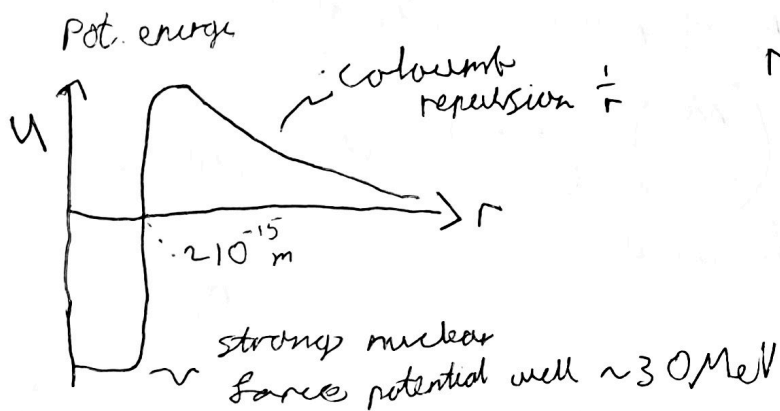 Pot. energy
U
coloumb
repulsion 1/r
r
~10^-15 m
strong nuclear
force potential well ~30MeV